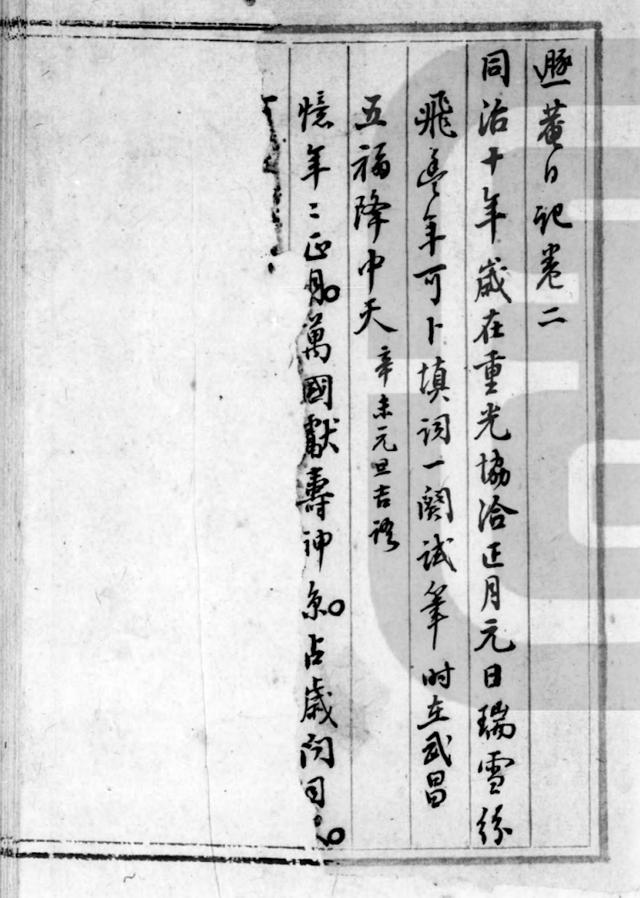 遯菴日記卷二
同治十年歲在重光協洽正月元日瑞雪紛
飛豊年可卜填詞一闋試筆時在武昌
五福降中天 辛未元旦吉語
憶年〻正月萬國獻壽神京占歲問